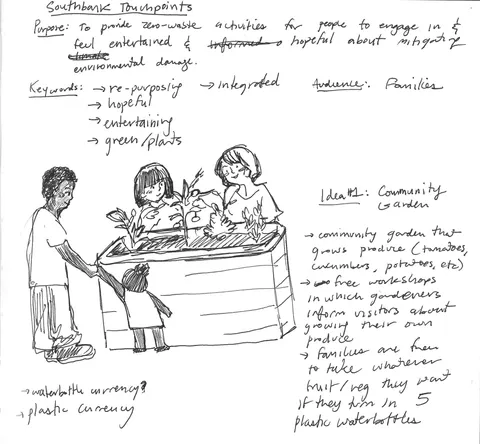 Southbank Touchpoints
Purpose: To provide zero-waste activities for people to engage in &
feel entertained & informed & hopeful about mitigating
climate
environmental damage.
Keywords: → re-purposing → integrated
→ hopeful
→ entertaining
→ green/plants
Audience: Families
Idea #1: Community
Garden
→ community garden that
grows produce (tomatoes,
cucumbers, potatoes, etc)
→ free workshops
in which gardeners
inform visitors about
growing their own
produce
→ families are free
to take whatever
fruit/veg they want
if they turn in 5
plastic waterbottles
→ waterbottle currency?
→ plastic currency